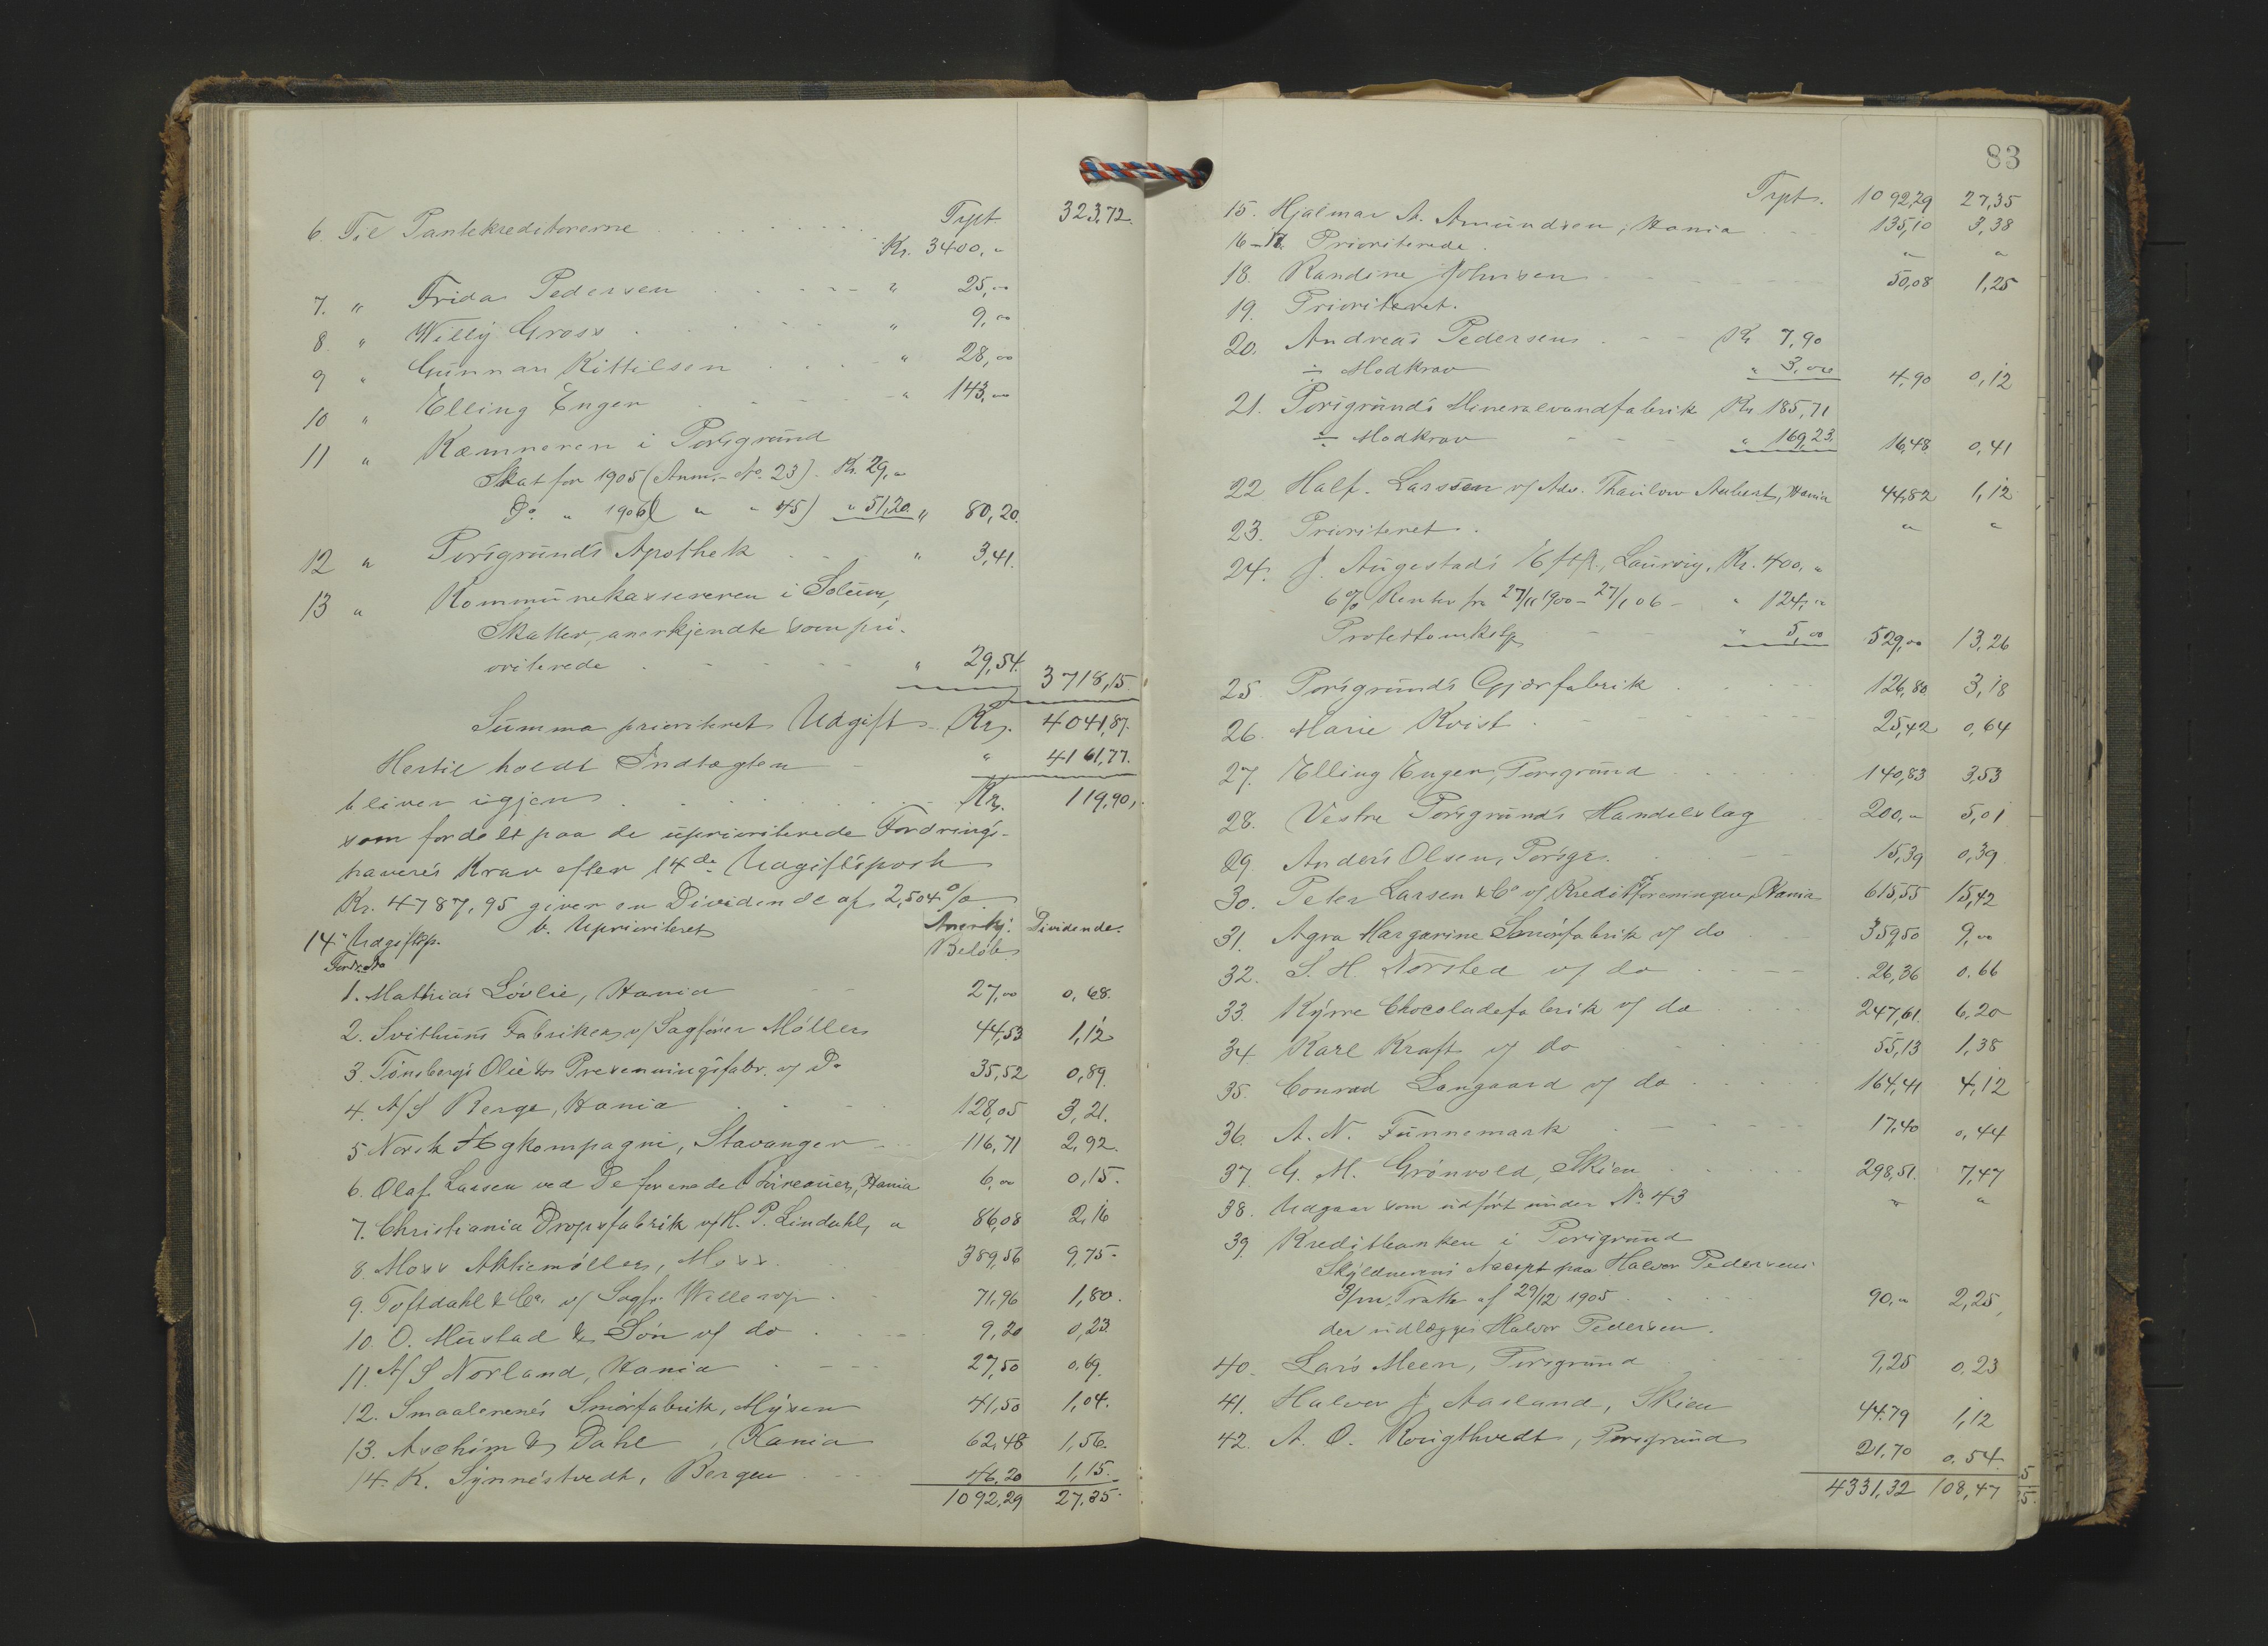 Trpt 323,72.
6. Til Pantekreditorerne Kr. 3400,"
7. " Frida Pedersen " 25,00
8 " Willy Gross " 9,00
9 " Gunnar Kittilsen " 28,00
10 " Elling Enger " 143,00
11 " Kæmneren i Porsgrund
Skat for 1905 (Anm. No 23). Kr. 29,"
Do. " 1906 ( " " 45) " 51,20 " 80,20.
12 " Porsgrunds Apothek " 3,41.
13 " Kommunekassereren i Solum,
Skatter, anerkjendte som pri-
oriterede " 29,54. 3718,15.
Summa prioriteret Udgift Kr. 4041,87.
Hertil holdt Indtægten " 4161,77.
bliver igjen Kr. 119,90,
som fordelt paa de uprioriterede Fordrings-
haveres Krav efter 14de Udgiftspost
Kr. 4787,95 giver en Dividende af 2,504 %.
b. Uprioriteret Anerkj. Dividende.
14" Udgiftsp. Beløb
Fordr. No
1. Mathias Løvlie, Kania 27,00 0,68.
2. Svithuns Fabriker v/ Sagfører Møller 44,53 1,12
3. Tønsbergs Olie & Presenningsfabr. v/ Do 35,52 0,89.
4. A/S Berge, Kania 128,05 3,21.
5 Norsk Ægkompagni, Stavanger 116,71 2,92.
6. Olaf Larsen ved De forenede Bureauer, Kania 6,00 0,15.
7. Christiania Dropsfabrik v/ H. P. Lindahl, " 86,08 2,16
8. Moss Aktiemøller, Moss 389,56 9,75.
9. Toftdahl & Co. v/ Sagf. Willerup 71,96 1,80.
10. O. Mustad & Søn v/ do 9,20 0,23.
11. A/S Norland, Kania 27,50 0,69.
12. Smaalenenes Smørfabrik, Mysen 41,50 1,04.
13. Aschim & Dahl, Kania 62,48 1,56.
14. K. Synnestvedt, Bergen 46,20 1,15.
1092,29 27,35.
83
Trpt. 1092,29 27,35
15. Hjalmar A. Amundsen, Kania 135,10 3,38
16-17. Prioriterede. " "
18. Randine Johnsen 50,08 1,25
19. Prioriteret.
20. Andreas Pedersen Kr 7,90
÷ Modkrav " 3,00 4,90 0,12
21. Porsgrunds Mineralvandfabrik Kr 185,71
÷ Modkrav " 169,23. 16,48 0,41
22 Half. Larssen v/ Adv. Thaulow Aubert, Kania 44,82 1,12
23. Prioriteret. " "
24. J. Augestads Eftf., Laurvig, Kr. 400,"
6% Renter fra 27/11 1900 - 27/1 06 - " 124,"
Protestomkstg " 5,00 529,00 13,26
25. Porsgrunds Gjærfabrik 126,80 3,18
26. Marie Kvist 25,42 0,64
27. Elling Enger, Porsgrund 140,83 3,53
28. Vestre Porsgrunds Handelslag 200,00 5,01
29. Anders Olsen, Porsgr. 15,39 0,39
30. Peter Larsen & Co v/ Kreditforeningen, Kania 615,55 15,42
31. Agra Margarine Smørfabrik v/ do 359,50 9,00
32. S. H. Norsted v/ do 26,36 0,66
33. Kyrre Chocoladefabrik v/ do 247,61. 6,20
34. Karl Kraft v/ do 55,13 1,38
35. Conrad Langaard v/ do 164,41 4,12
36. A. N. Funnemark 17,40 0,44
37. G. M. Grønvold, Skien 298,51. 7,47
38. Udgaar som udført under No. 43 " "
39. Kreditbanken i Porsgrund
Skyldnerens Accept paa Halvor Pedersens
3/m Tratte af 29/12 1905 90,00 2,25,
der udlægges Halvor Pedersen.
40. Lars Meen, Porsgrund 9,25 0,23
41. Halvor J. Aasland, Skien 44,79 1,12
42. A. O. Rougthvedt, Porsgrund 21,70 0,54.
4331,32 108,47